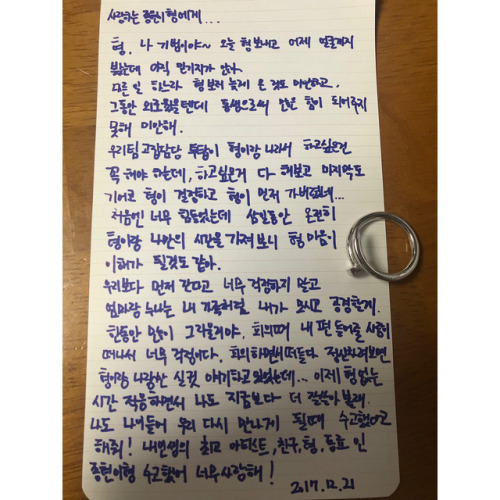 사랑하는 종현이형에게...
형, 나 기범이야~ 오늘 형 보내고 어제 얼굴까지
봤는데 아직 믿기지가 않아.
다른 일 하느라 형 보러 늦게 온 것도 미안하고,
그동안 외로웠을텐데 동생으로써 많은 힘이 되어주지
못해 미안해.
우리팀 고집담당 투탑이 형이랑 나라서 하고싶은건
꼭 해야 하는데, 하고싶은거 다 해보고 마지막도
기어코 형이 결정하고 형이 먼저 가버렸네...
처음엔 너무 힘들었는데 삼일동안 온전히
형이랑 나만의 시간을 가져보니 형 마음이
이해가 될것도 같아.
우리보다 먼저 갔다고 너무 걱정하지 말고
엄마랑 누나는 내 가족처럼 내가 모시고 공경할게.
한동안 많이 그리울거야. 회의때 내 편 들어줄 사람이
떠나서 너무 걱정이다. 회의하면서 떠들다 정신차려보면
형이랑 나랑만 실컷 얘기하고 있었는데... 이제 형 없는
시간 적응하면서 나도 지금보다 더 잘 살아볼래.
나도 나이들어 우리 다시 만나게 될때 수고했다고
해줘! 내 인생의 최고 아티스트, 친구, 형, 동료 인
종현이형 수고했어 너무 사랑해!
2017.12.21